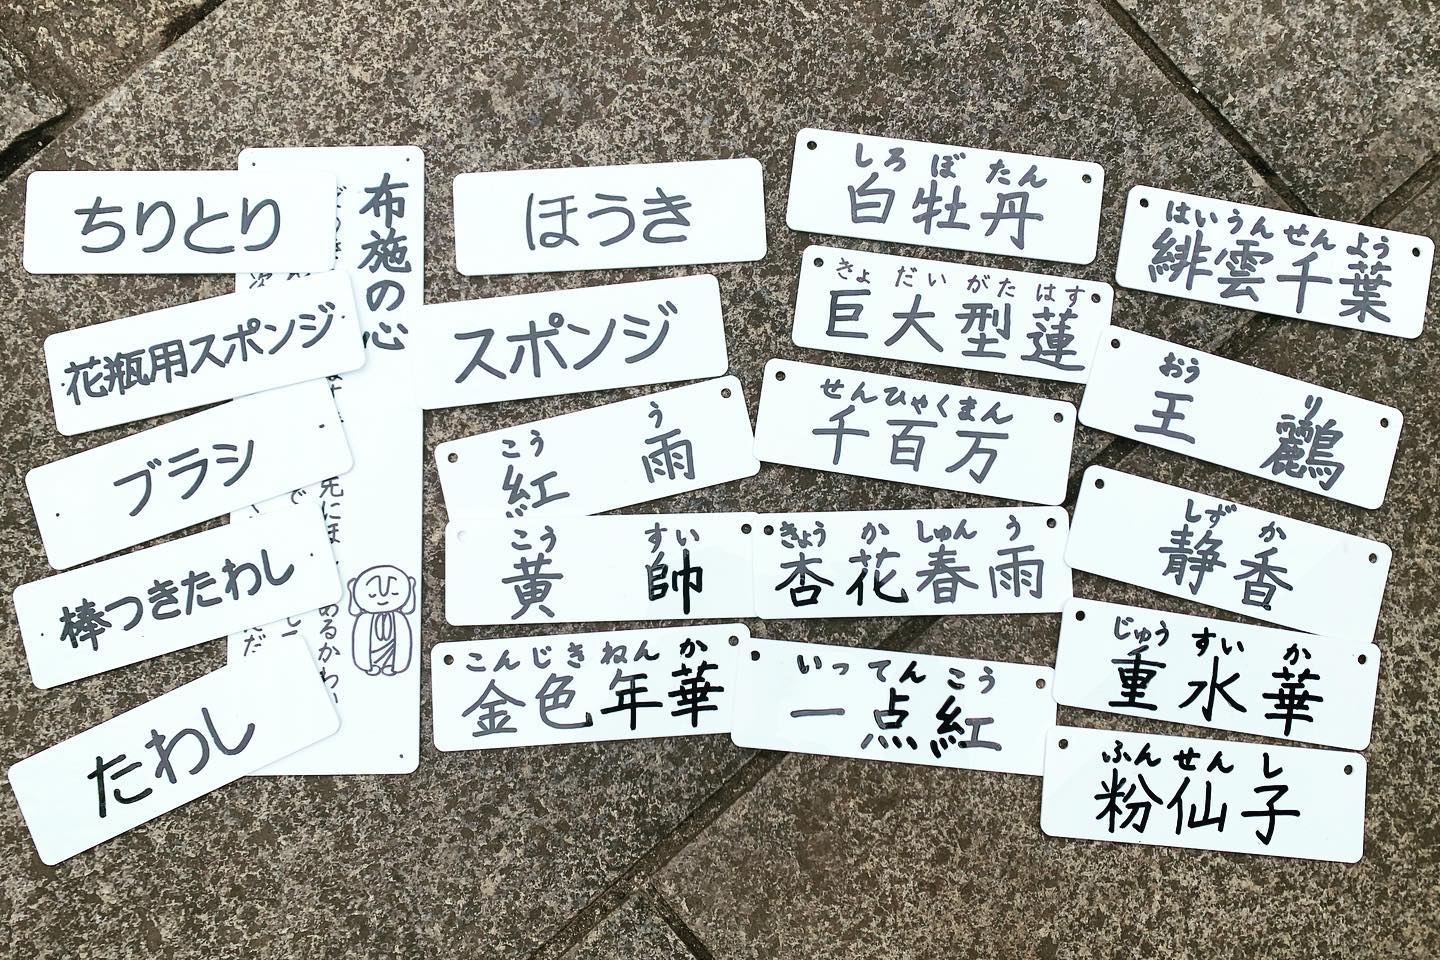 ちりとり
花瓶用スポンジ
ブラシ
棒つきたわし
たわし
布施の心
ほうき
スポンジ
こう う
紅 雨
こう すい
黄 帥
こんじきねんか
金色年華
しろぼたん
白牡丹
きょだいがたはす
巨大型蓮
せんひゃくまん
千百万
きょうかしゅんう
杏花春雨
いってんこう
一点紅
はいうんせんよう
緋雲千葉
おう り
王 鸝
しずか
静香
じゅうすいか
重水華
ふんせんし
粉仙子